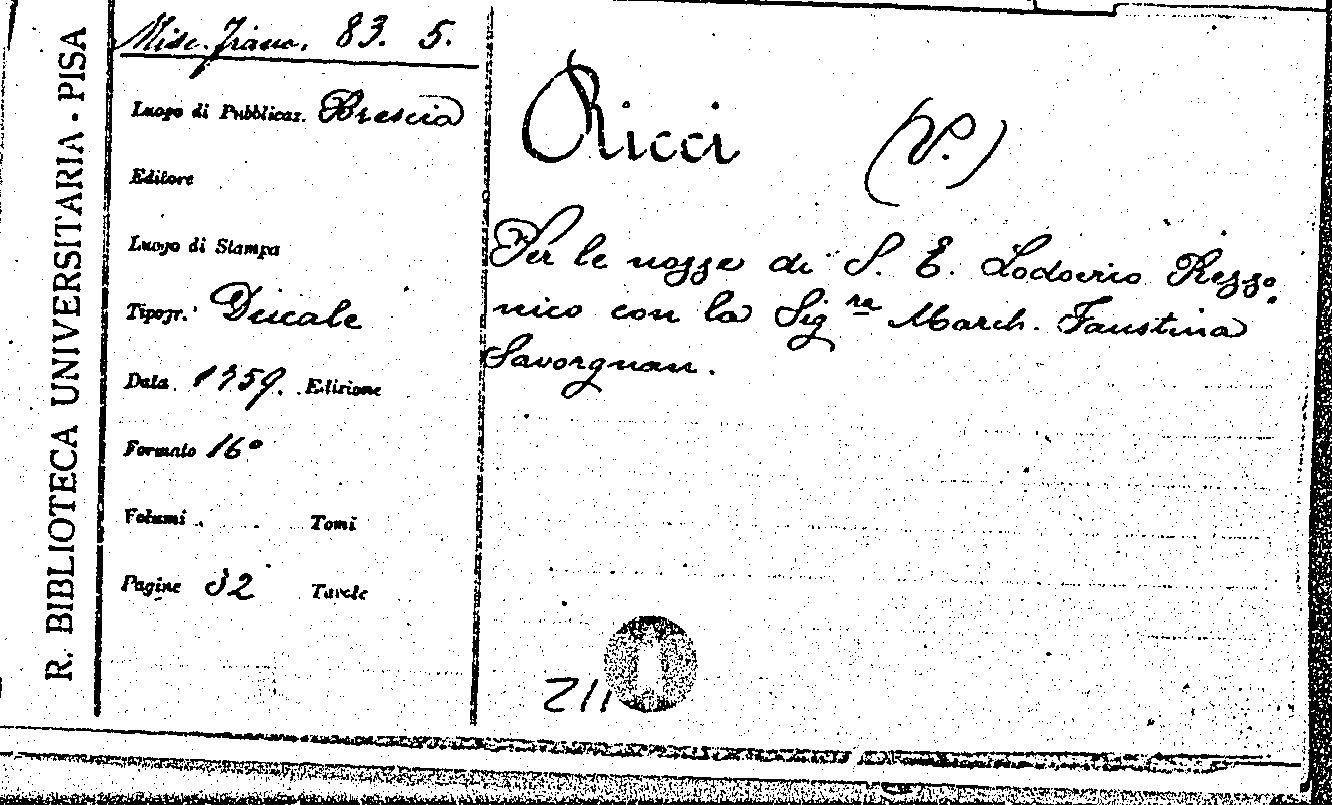 R. BIBLIOTECA UNIVERSITARIA · PISA
Misc. 83. 5.
Luogo di Pubblicaz. Brescia
Editore
Luogo di Stampa
Tipogr. Ducale
Data 1759. Edizione
Formato 16º
Volumi Tomi
Pagine 32 Tavole
Ricci (P.)
Per le nozze di S. E. Lodovico Rezzo
nico con la Sig.ra March. Faustina
Savorgnan.